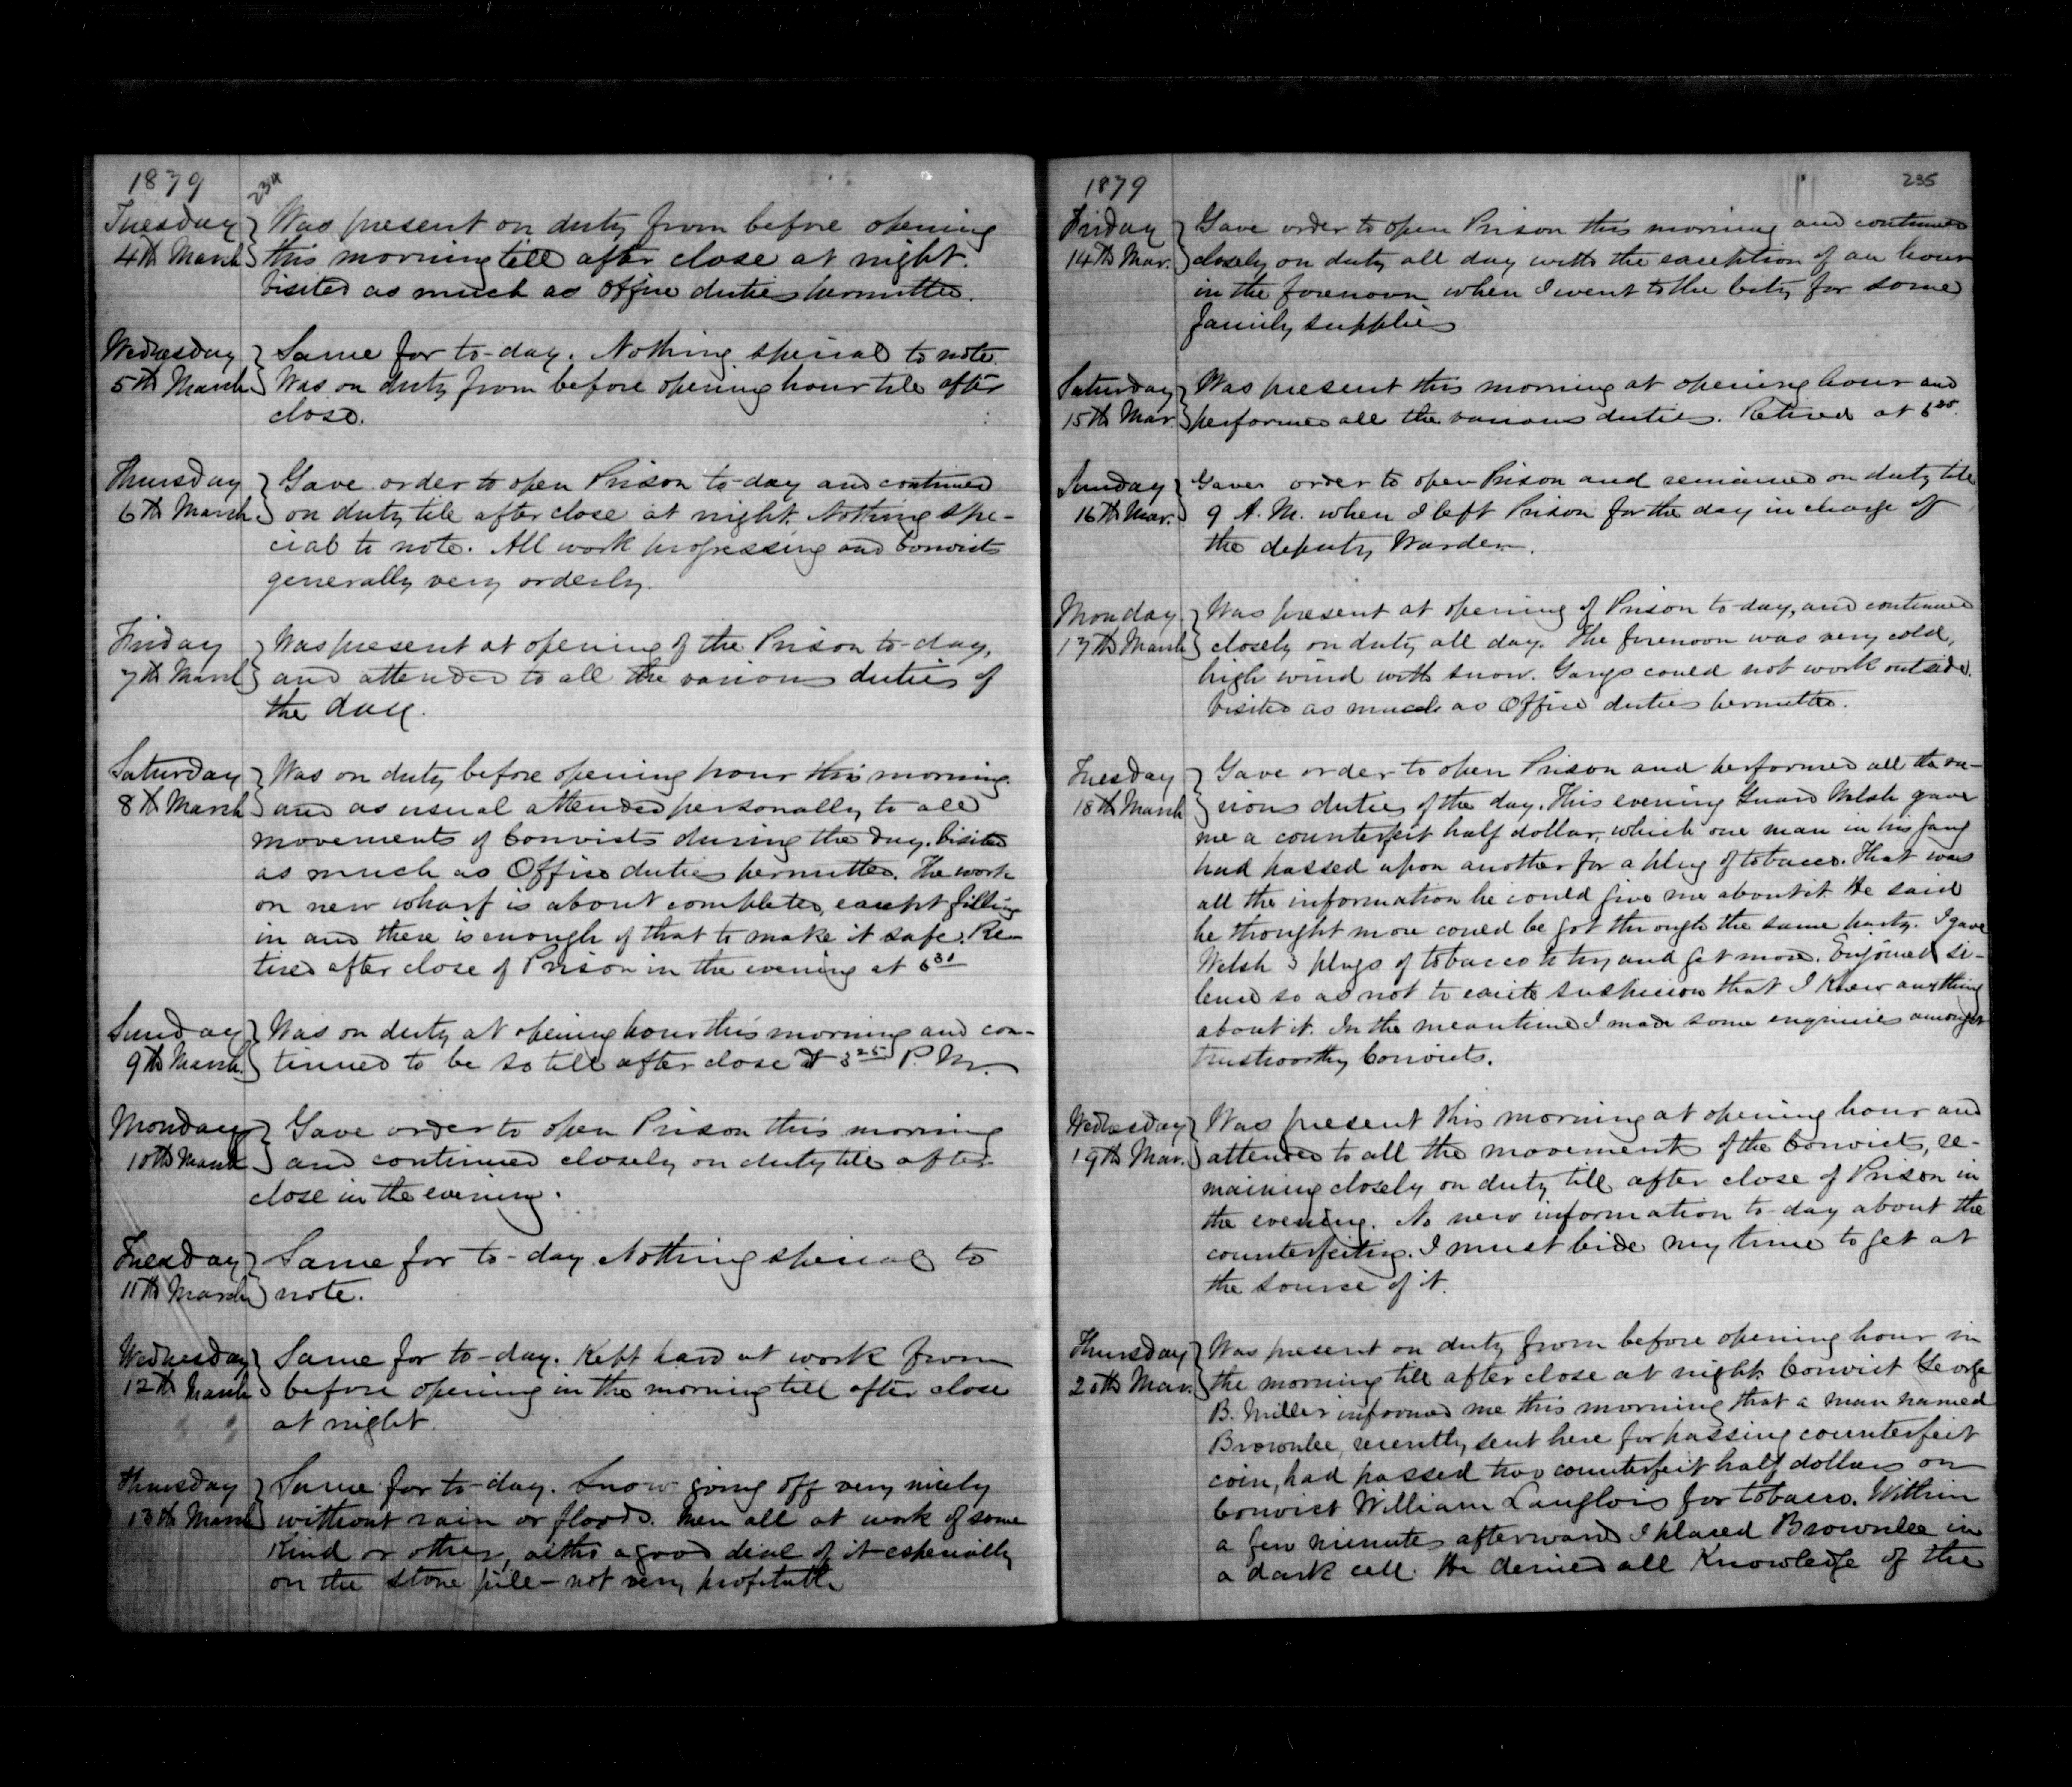 1879
234
Tuesday
4th March
Was present on duty from before opening
this morning till after close at night.
Visited as much as Office duties permitted.
Wednesday
5th March
Same for to-day. Nothing special to note.
Was on duty from before opening hour till after
close.
Thursday
6th March
Gave order to open Prison to-day and continued
on duty till after close at night. Nothing spe-
cial to note. All work progressing and Convicts
generally very orderly.
Friday
7th March
Was present at opening of the Prison to-day,
and attended to all the various duties of
the day.
Saturday
8th March
Was on duty before opening hour this morning
and as usual attended personally to all
movements of Convicts during the day. Visited
as much as Office duties permitted. The work
on new wharf is about completed, except filling
in and there is enough of that to make it safe. Re-
tired after close of Prison in the evening at 6 31
Sunday
9th March.
Was on duty at opening hour this morning and con-
tinued to be so till after close at 3 25 P. M.
Monday
10th March
Gave order to open Prison this morning
and continued closely on duty till after
close in the evening.
Tuesday
11th March
Same for to-day Nothing special to
note.
Wednesday
12th March
Same for to-day. Kept hard at work from
before opening in the morning till after close
at night.
Thursday
13th March
Same for to-day. Snow going off very nicely
without rain or floods. Men all at work of some
kind or other, altho a good deal of it especially
on the stone pile - not very profitable
1879
235
Friday
14th Mar.
Gave order to open Prison this morning and continued
closely on duty all day with the exception of an hour
in the forenoon when I went to the City for some
family supplies
Saturday
15th Mar.
Was present this morning at opening hour and
performed all the various duties. Retired at 6
Sunday
16th Mar.
Gave order to open Prison and remained on duty till
9 A. M. when I left Prison for the day in charge of
the deputy Warden.
Monday
17th March
Was present at opening of Prison to-day, and continued
closely on duty all day. The forenoon was very cold,
high wind with snow. Gangs could not work outside.
Visited as much as Office duties permitted.
Tuesday
18th March
Gave order to open Prison and performed all the va-
rious duties of the day. This evening Guard Welsh gave
me a counterfeit half dollar, which one man in his gang
had passed upon another for a plug of tobacco. That was
all the information he could give me about it. He said
he thought more could be got through the same party. I gave
Welsh 3 plugs of tobacco to try and get more. Enjoined si-
lence so as not to excite suspicion that I knew anything
about it. In the meantime I made some enquiries amongst
trustworthy Convicts.
Wednesday
19th Mar.
Was present this morning at opening hour and
attended to all the movements of the Convicts, re-
maining closely on duty till after close of Prison in
the evening. No new information to-day about the
counterfeiting. I must bide my time to get at
the source of it.
Thursday
20th Mar.
Was present on duty from before opening hour in
the morning till after close at night. Convict George
B. Miller informed me this morning that a man named
Brownlee, recently sent here for passing counterfeit
coin, had passed two counterfeit half dollars on
Convict William Langlois for tobacco. Within
a few minutes afterward I placed Brownlee in
a dark cell. He denied all knowledge of the